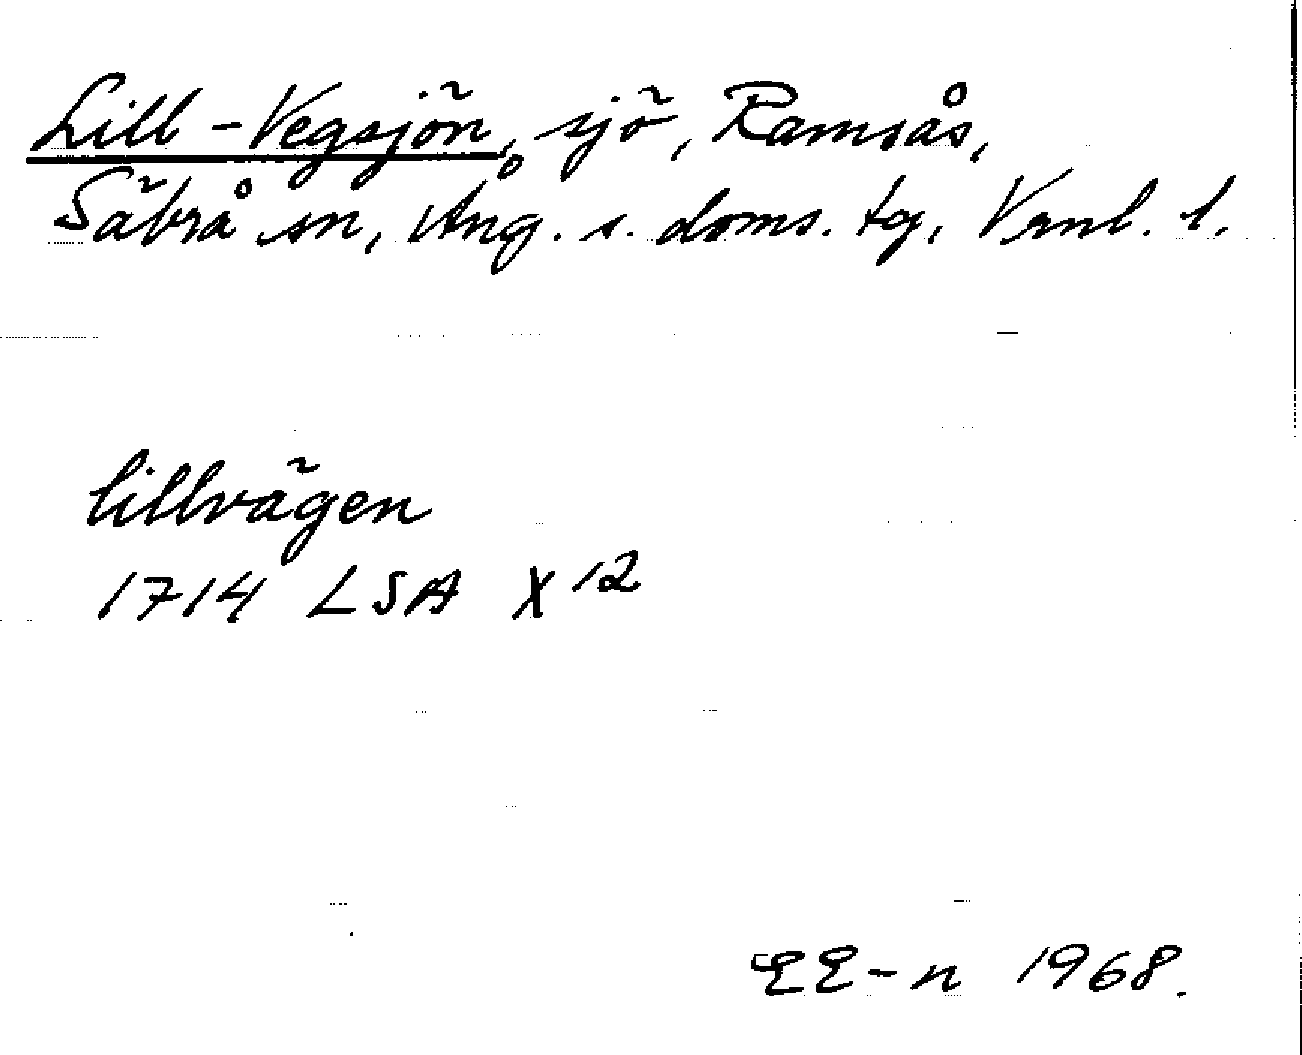 Lill-Vegsjön, sjö, Ramsås,
Säbrå sn, Ång. s. doms. tg, Vrnl. l.
lillvägen
1714 LSA X 12
EE-n 1968.